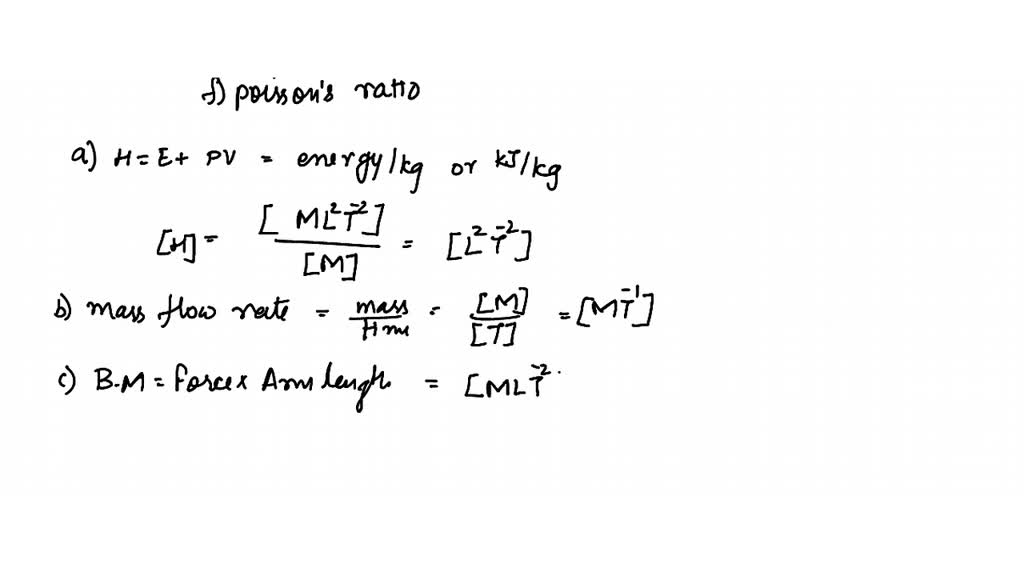 f) poisson's ratio
a) H = E + PV = energy/kg or kJ/kg
[H] = [ML²T⁻²] / [M] = [L²T⁻²]
b) mass flow rate = mass / time = [M] / [T] = [MT⁻¹]
c) B.M = Force x Arm length = [MLT⁻²